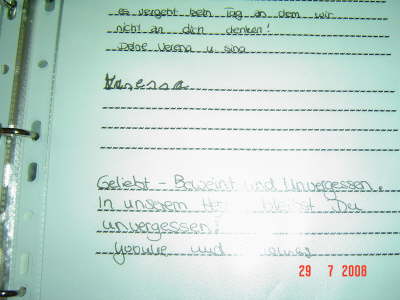 es vergeht kein Tag an dem wir
nicht an dich denken!
Deine Verena u sina
Vanessa
Geliebt - Beweint und Unvergessen.
In unserem Herz bleibst Du
unvergessen!
und
29 7 2008